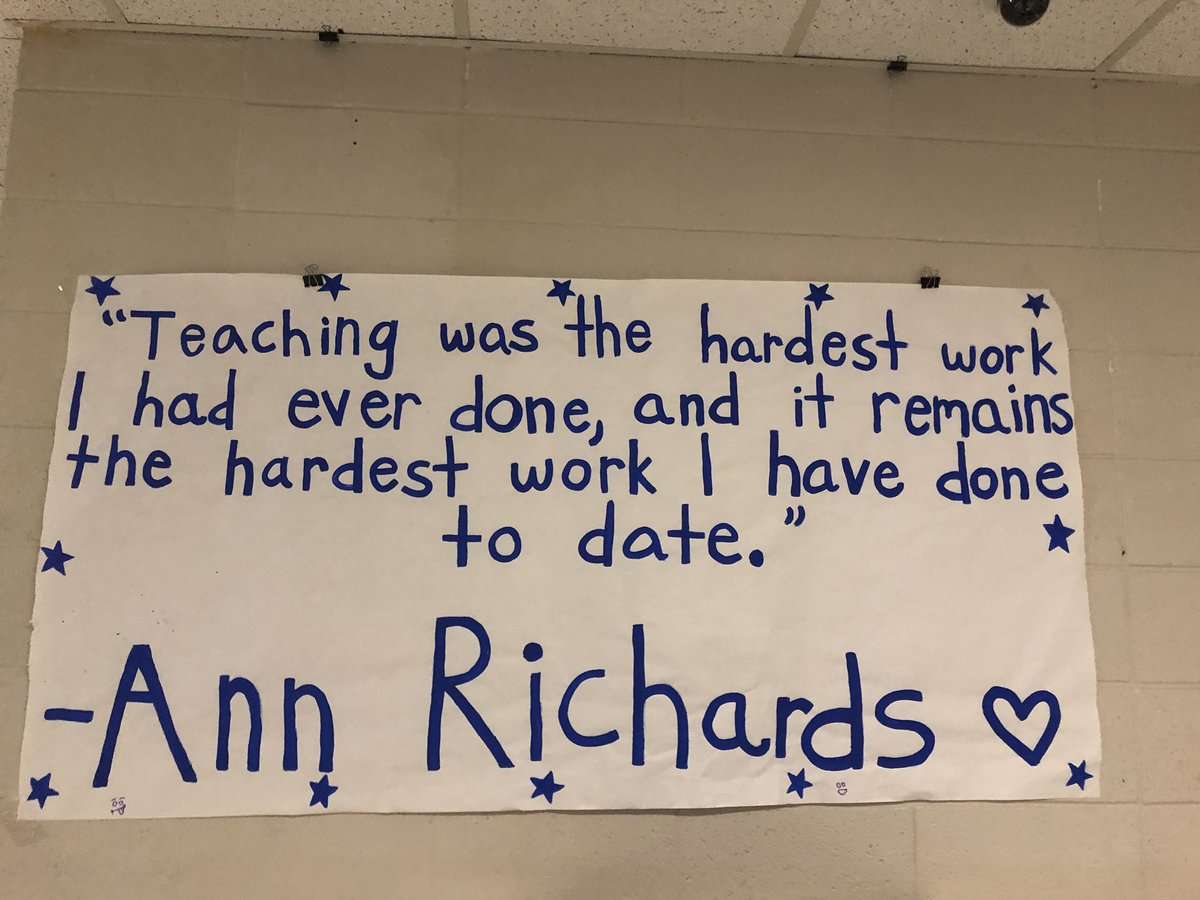 “Teaching was the hardest work
I had ever done, and it remains
the hardest work I have done
to date.”
-Ann Richards